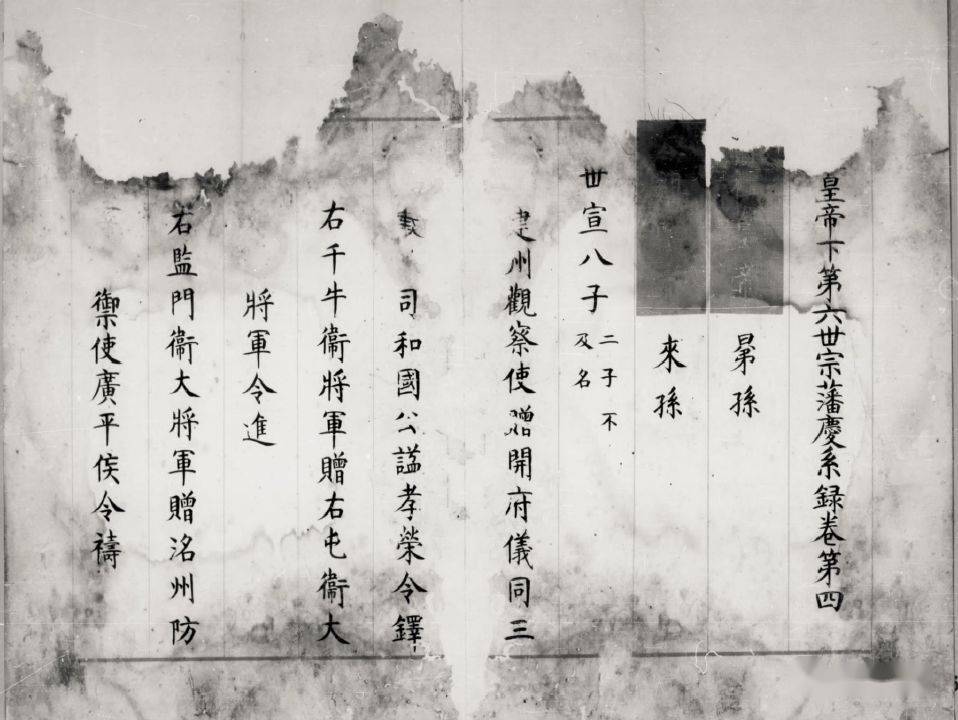 皇帝下第六丗宗藩慶系録卷第四
晜孫
來孫
丗宣八子 二子不
及名
建州觀察使贈開府儀同三
司和國公謚孝榮令鐸
右千牛衞將軍贈右屯衞大
將軍令進
右監門衞大將軍贈洺州防
禦使廣平侯令禱